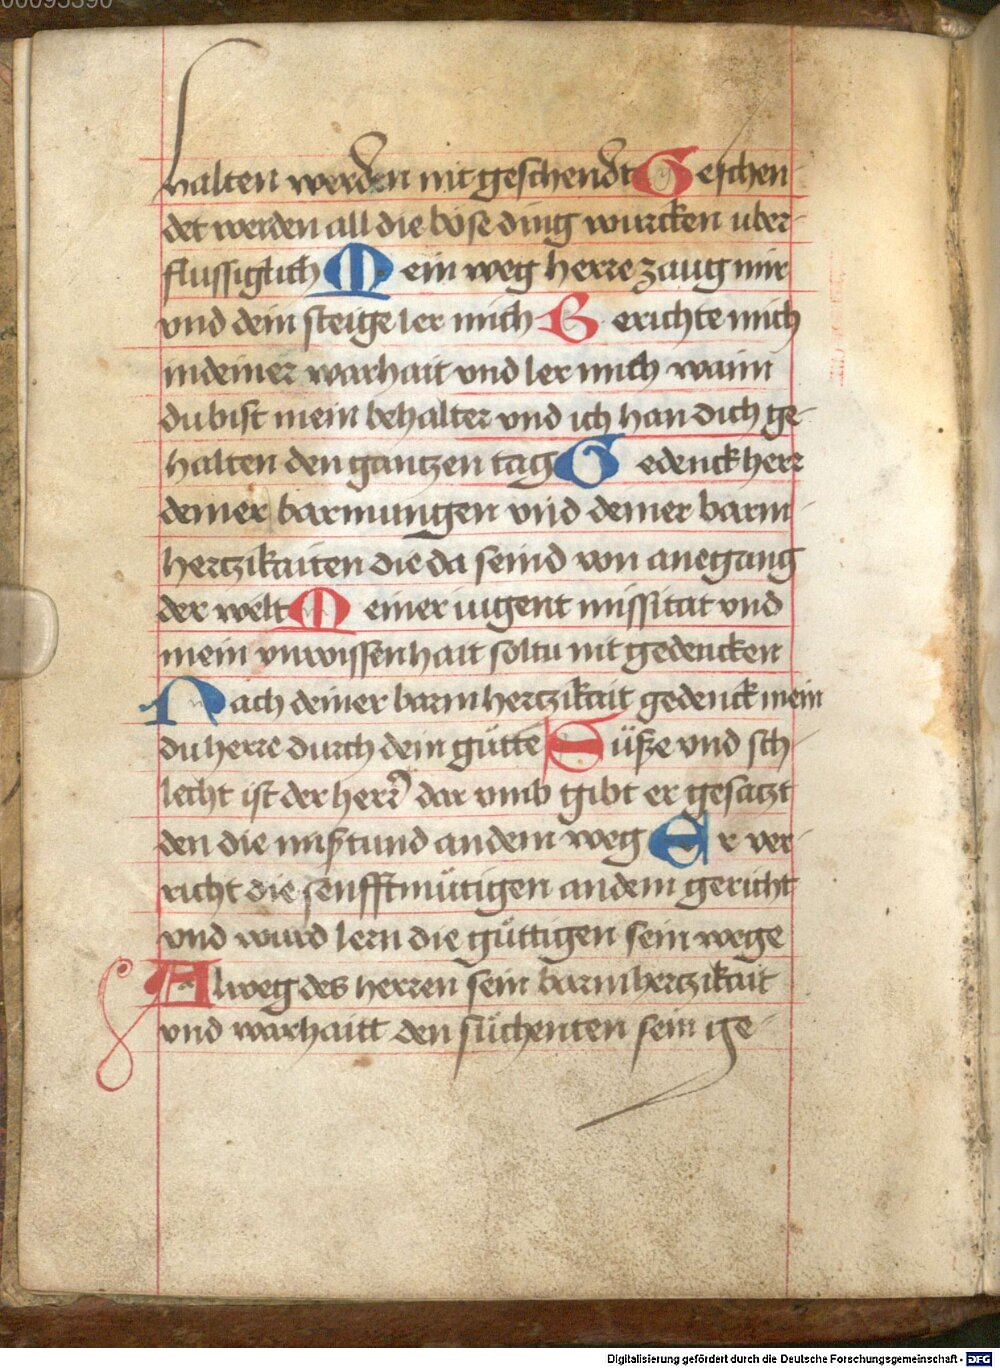 00095390
halten werden nit geschendt Geschen
det werden all die böse ding wurcken uber
flussiglich Mein weg herre zaug mir
vnd dein steige ler mich Gerichte mich
in deiner warhait vnd ler mich wann
du bist mein behalter vnd ich han dich ge
halten den gantzen tag Gedenck herr
deiner barmungen vnd deiner barm
hertzikaiten die da seind von anegang
der welt Meiner iugent missitat vnd
mein vnwissenhait soltu nit gedencken
Nach deiner barmhertzikait gedenck mein
du herre durch dein gütte Süße vnd sch
lecht ist der herr dar vmb gibt er gesatzt
den die mißtund an dem weg Er ver
richt die senfftmütigen an dem gericht
vnd wurd lern die güttigen sein wege
Alweg des herren sein barmhertzikait
vnd warhaitt den süchenten sein ge
Digitalisierung gefördert durch die Deutsche Forschungsgemeinschaft - DFG